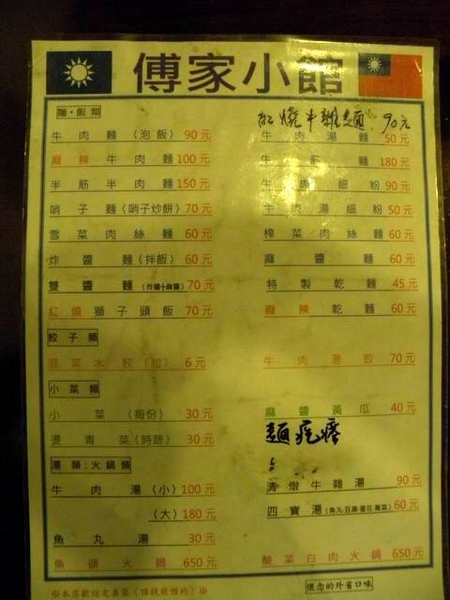 傅家小館
麵·飯類
紅燒牛雜麵 90元
牛肉麵(泡飯) 90元
牛肉湯麵 50元
麻辣牛肉麵 100元
牛筋麵 180元
半筋半肉麵 150元
牛肉細粉 90元
哨子麵(哨子炒餅) 70元
牛肉湯細粉 50元
雪菜肉絲麵 60元
榨菜肉絲麵 60元
炸醬麵(拌飯) 60元
麻醬麵 60元
雙醬麵(炸醬+麻醬) 70元
特製乾麵 45元
紅燒獅子頭飯 70元
麻辣乾麵 60元
餃子類
韮菜水餃(粒) 6元
牛肉湯餃 70元
小菜類
小菜(每份) 30元
麻醬黃瓜 40元
燙青菜(時蔬) 30元
麵疙瘩
湯類:火鍋類
牛肉湯(小) 100元
清燉牛雜湯 90元
(大) 180元
四寶湯(魚丸·豆腐·蛋花·青菜) 60元
魚丸湯 30元
魚頭火鍋 650元
酸菜白肉火鍋 650元
※本店歡迎定桌菜(請提前預約)※
懷念的外省口味